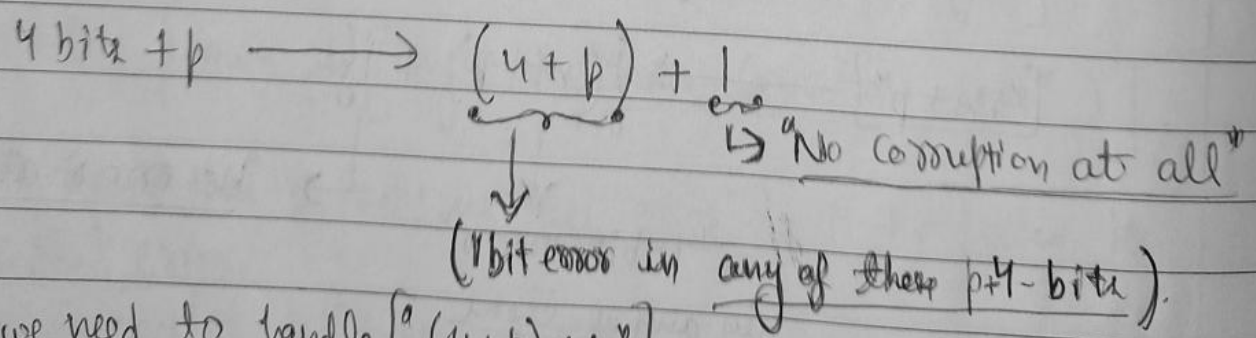 4 bits + p ⟶ (4 + p) + 1
↳ "No corruption at all"
(1 bit error in any of these p+4-bits).
we need to handle